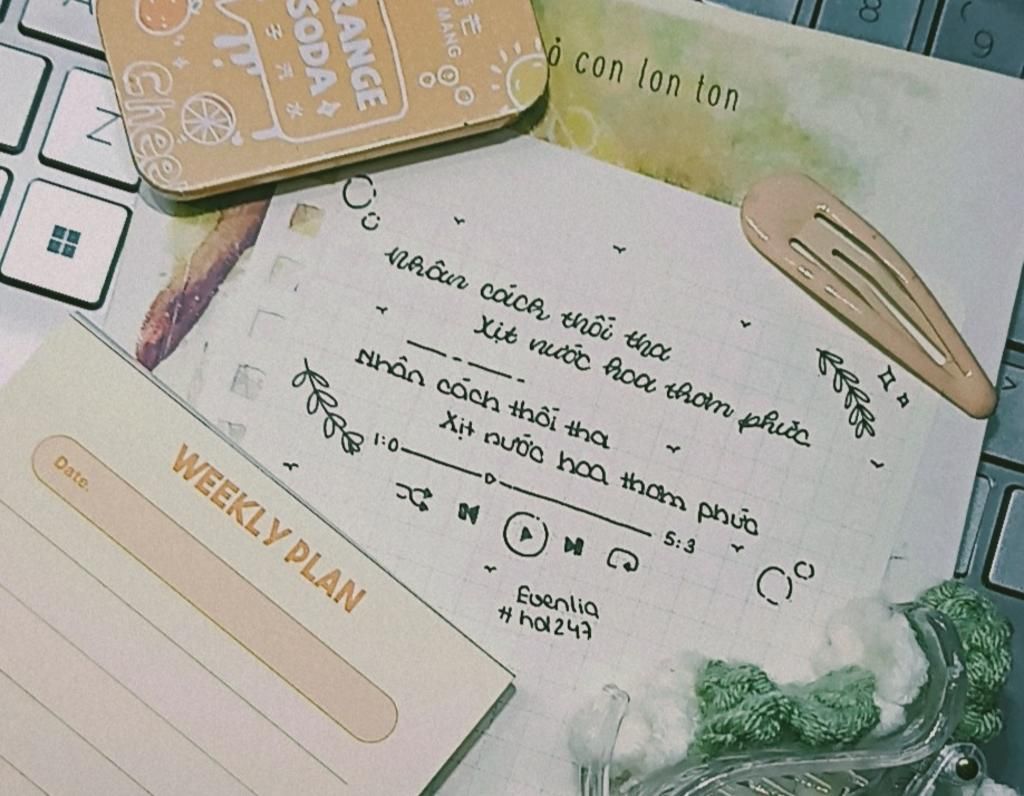 RANGE
SODA
子 汽 水
MANG
Cheer
8
9
N
ỏ con lon ton
Nhân cách thối tha
Xịt nước hoa thơm phức
Nhân cách thối tha
Xịt nước hoa thơm phức
1:0
5:3
Evenlia
#hol247
WEEKLY PLAN
Date.